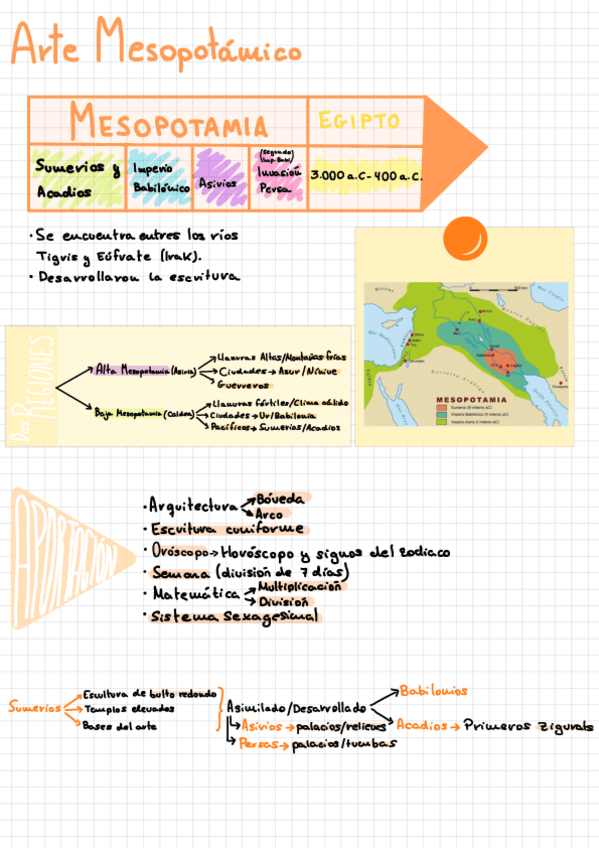 Arte Mesopotámico
MESOPOTAMIA
EGIPTO
Sumerios y
Acadios
Imperio
Babilónico
Asirios
(Segundo)
(Imp. Babi)
Invasión
Persa
3.000 a.C - 400 a.C.
· Se encuentra entres los ríos
Tigris y Eúfrate (Irak).
· Desarrollaron la escritura
Dos REGIONES
Alta Mesopotamia (Asiria)
Llanuras Altas/Montañas frías
Ciudades → Asur / Nínive
Guerreros
Baja Mesopotamia (Caldea)
Llanuras fértiles/Clima cálido
Ciudades → Ur/Babilonia
Pacíficos → Sumerios/Acadios
MESOPOTAMIA
APORTACIÓN
· Arquitectura
Bóveda
Arco
· Escritura cuniforme
· Oróscopo → Horóscopo y signos del zodiaco
· Semana (división de 7 días)
· Matemática
Multiplicación
División
· Sistema Sexagesimal
Sumerios
Escultura de bulto redondo
Templos elevados
Bases del arte
Asimilado/Desarrollado
Babilonios
Acadios → Primeros Zigurats
Asirios → palacios/relieves
Persas → palacios/tumbas